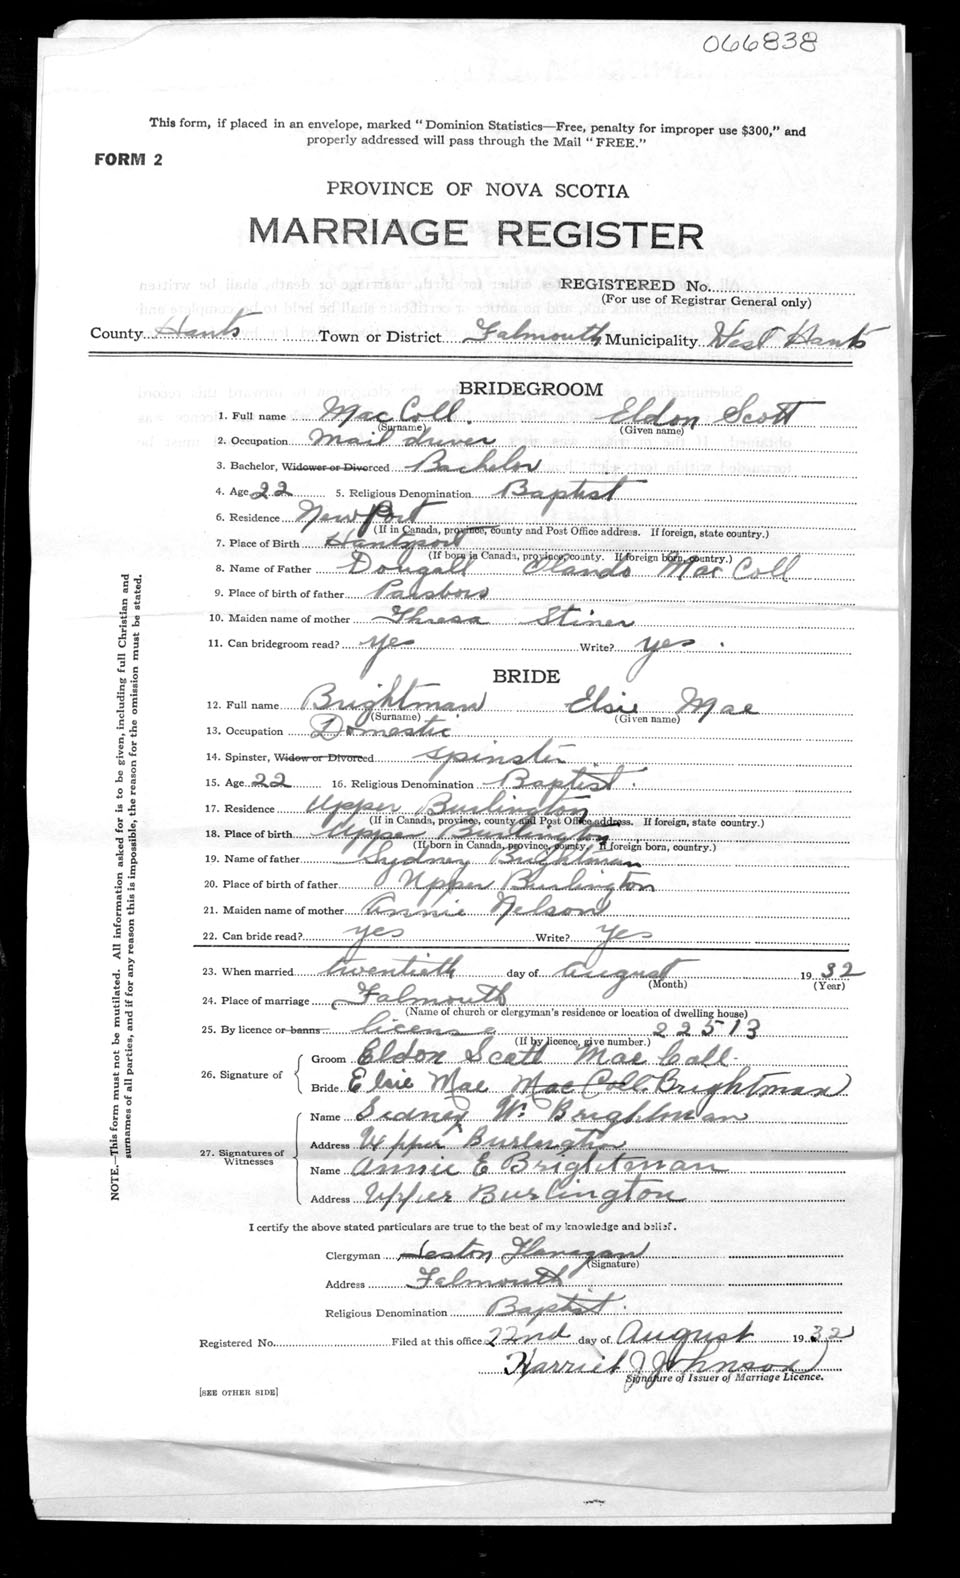 066838
This form, if placed in an envelope, marked "Dominion Statistics—Free, penalty for improper use $300," and
properly addressed will pass through the Mail "FREE."
FORM 2
PROVINCE OF NOVA SCOTIA
MARRIAGE REGISTER
REGISTERED No.
(For use of Registrar General only)
County Hants Town or District Falmouth Municipality West Hants
BRIDEGROOM
1. Full name MacColl. Eldon Scott
(Surname) (Given name)
2. Occupation Mail driver
3. Bachelor, Widower or Divorced Bachelor
4. Age 22 5. Religious Denomination Baptist
6. Residence Newport
(If in Canada, province, county and Post Office address. If foreign, state country.)
7. Place of Birth Hantsport
(If born in Canada, province, county. If foreign born, country.)
8. Name of Father Dougall Mac Coll
9. Place of birth of father Parsboro
10. Maiden name of mother Thresa Stiner
11. Can bridegroom read? yes Write? yes.
BRIDE
12. Full name Brightman Elsie Mae
(Surname) (Given name)
13. Occupation Domestic
14. Spinster, Widow or Divorced spinster
15. Age 22 16. Religious Denomination Baptist.
17. Residence Upper Burlington
(If in Canada, province, county and Post Office address. If foreign, state country.)
18. Place of birth Upper Burlington
(If born in Canada, province, county. If foreign born, country.)
19. Name of father Sydney Brightman
20. Place of birth of father Upper Burlington
21. Maiden name of mother Annie Nelson
22. Can bride read? yes Write? yes
23. When married twentieth day of August 1932
(Month) (Year)
24. Place of marriage Falmouth
(Name of church or clergyman's residence or location of dwelling house)
25. By licence or banns license 22513
(If by licence, give number.)
26. Signature of
Groom Eldon Scott MacColl
Bride Elsie Mae MacColl Brightman
27. Signatures of Witnesses
Name Sidney W. Brightman
Address Upper Burlington
Name Annie E Brightman
Address Upper Burlington
I certify the above stated particulars are true to the best of my knowledge and belief.
Clergyman Flanagan
(Signature)
Address Falmouth
Religious Denomination Baptist.
Registered No. Filed at this office 22nd day of August 1932
Harriet J Johnson
Signature of Issuer of Marriage Licence.
[SEE OTHER SIDE]
NOTE.—This form must not be mutilated. All information asked for is to be given, including full Christian and
surnames of all parties, and if for any reason this is impossible, the reason for the omission must be stated.